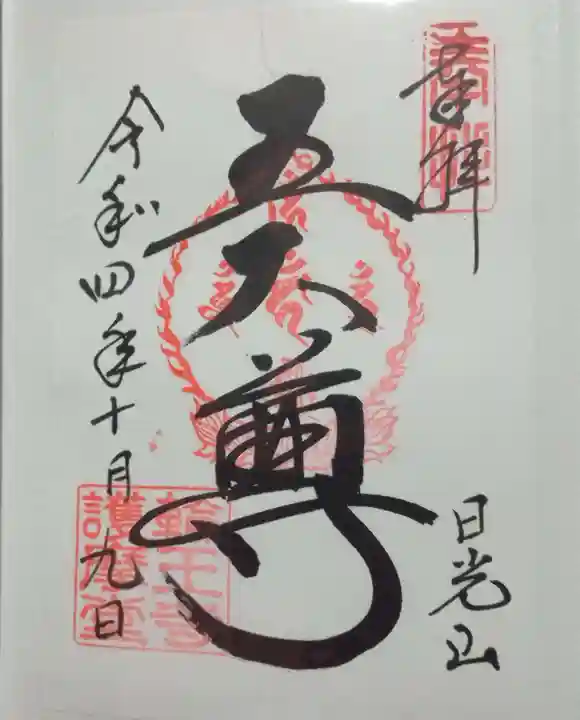 奉拝
日光山
五大尊
令和四年十月九日
輪王寺
護摩堂